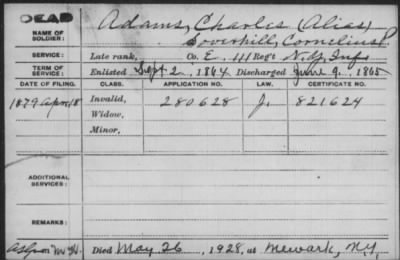 DEAD
NAME OF SOLDIER: Adams, Charles (Alias)
Soverhill, Cornelius
SERVICE: Late rank, Co. E, 111 Reg't N.Y. Inf
TERM OF SERVICE: Enlisted Sept 2, 1864 Discharged June 9, 1865
DATE OF FILING. CLASS. APPLICATION NO. LAW. CERTIFICATE NO.
1879 Apr 18 Invalid, 280628 J. 821624
Widow,
Minor,
ADDITIONAL SERVICES:
REMARKS:
Died May 26, 1928, at Newark, N.Y.